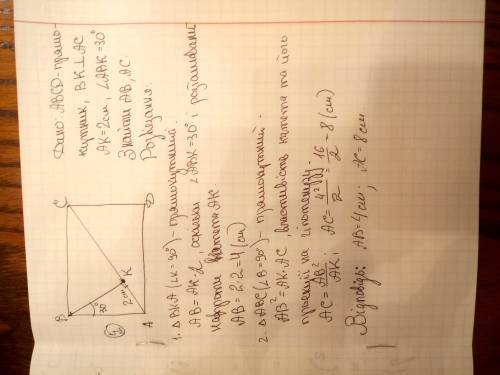 Дано: ABCD - прямо-
кутник, BK⊥AC
AK=2см, ∠ABK=30°
Знайти AB, AC
Розв'язання.
B
C
30°
2см
K
A
D
1. △BKA (∠K=90°) - прямокутний.
AB=AK·2, оскільки ∠ABK=30° і розташований
навпроти катета AK.
AB=2·2=4 (см)
2. △ABC (∠B=90°) - прямокутний.
AB²=AK·AC, властивість катета та його
проекції на гіпотенузу.
AC=AB²/AK; AC=4²/2=16/2=8 (см)
Відповідь: AB=4см; AC=8см